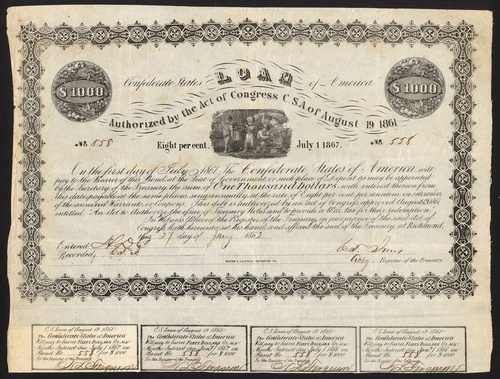 LOAN
Confederate States of America
$1000 $1000
Authorized by the Act of Congress C.S.A of August 19 1861
No. 558 No. 558
Eight per cent. July 1 1867.
On the first day of July 1867 The Confederate States of America will
pay to the Bearer of this Bond at the Seat of Government or such place of deposit as may be appointed
by the Secretary of the Treasury, the sum of One Thousand Dollars, with interest thereon from
this date payable at the same places, semi-annually, at the rate of Eight per cent, per annum, on surrender
of the annexed Warrants or Coupons. This debt is authorized by an act of Congress approved August 19, 1861
entitled, An Act to Authorize the issue of Treasury Notes and to provide a War Tax for their redemption
In Witness Whereof the Register of the Treasury, in pursuance of the said Act of
Congress, hath hereunto set his hand and affixed the seal of the Treasury at Richmond,
this 27 day of Jany 1862
Entered
Recorded
Register of the Treasury
C.S. Loan of August 19 1861
The Confederate States of America
Bond No. 558 for $1000
C.S. Loan of August 19 1861
The Confederate States of America
Bond No. 558 for $1000
C.S. Loan of August 19 1861
The Confederate States of America
Bond No. 558 for $1000
C.S. Loan of August 19 1861
The Confederate States of America
Bond No. 558 for $1000